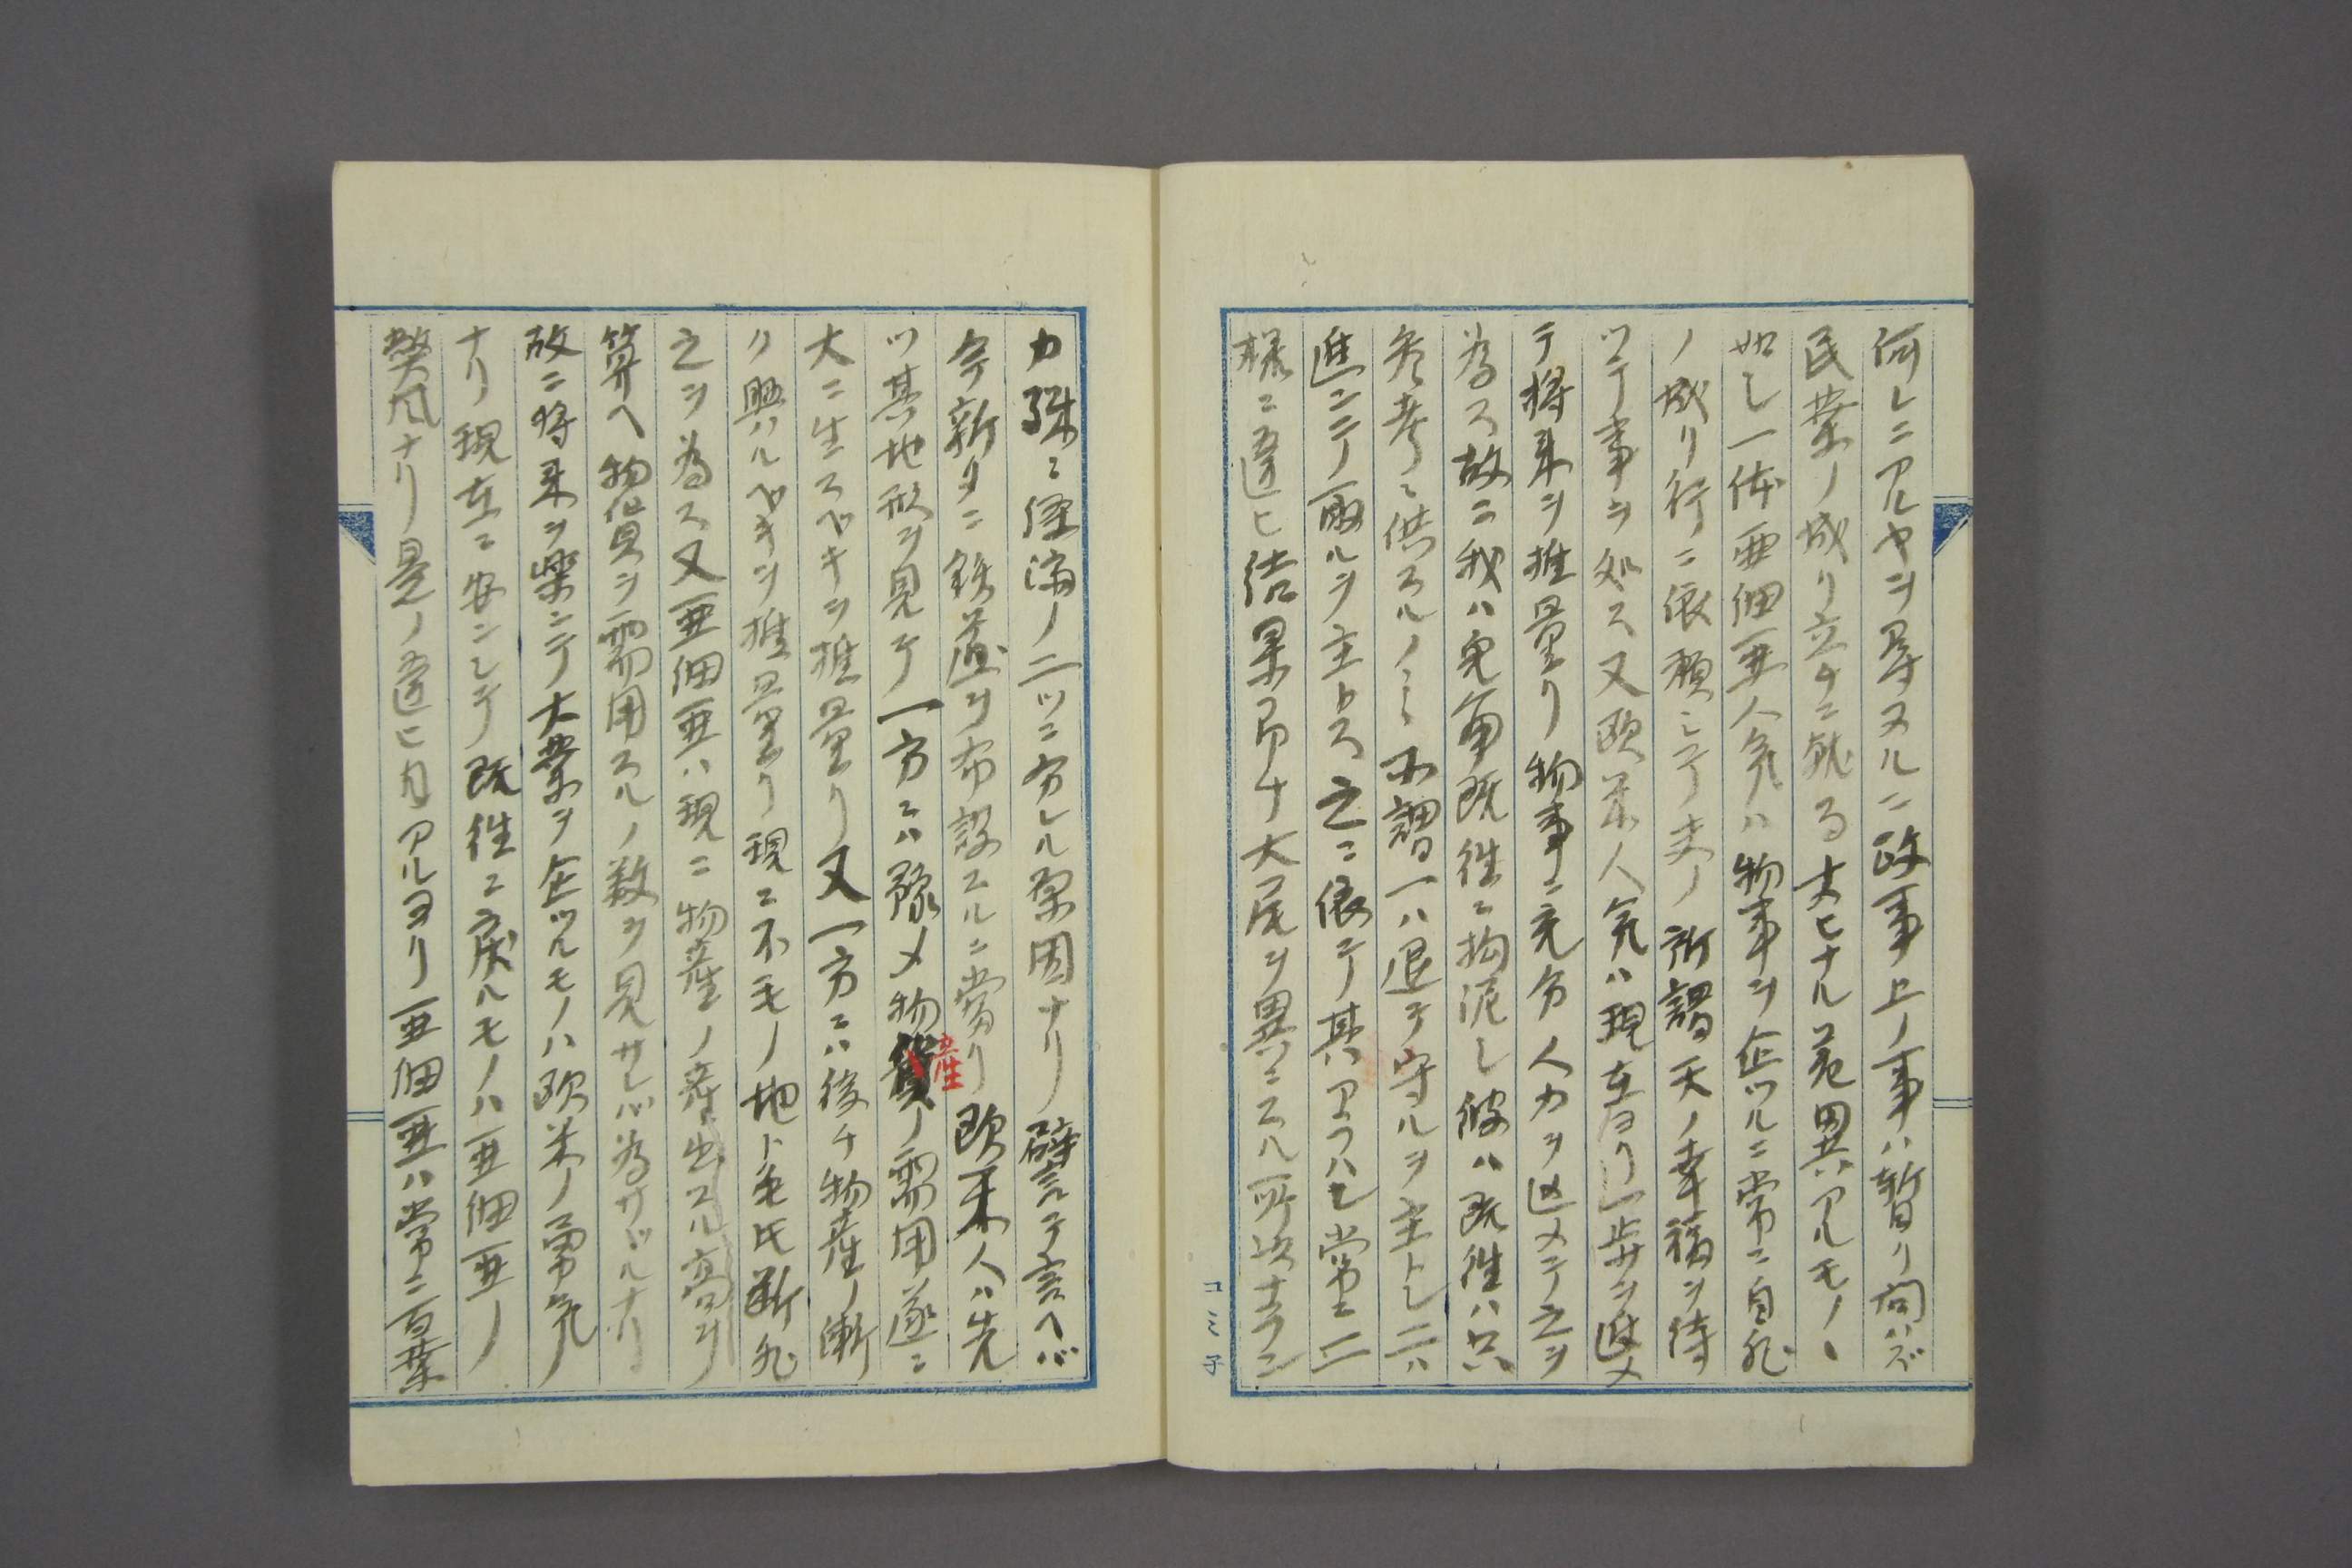 何レニアルヤヲ尋ヌルニ政事上ノ事ハ暫ク問ハズ
民業ノ成リ立チニ就る大ヒナル差異アルモノヽ
如し一体亜細亜人気ハ物事ヲ企ツルニ常ニ自然
ノ成リ行ニ依頼シテ夫ノ所謂天ノ幸福ヲ待
ツテ事ヲ処ス又欧米人気ハ現在ヨリ一歩ヲ進メ
テ将来ヲ推量リ物事ニ充分人力ヲ込メテ之ヲ
為ス故ニ我ハ兎角既往ニ拘泥し彼ハ既往ハ只
参考ニ供スルノミ所謂一ハ退テ守ルヲ主トし二ハ
進ンテ取ルヲ主トス之ニ依テ其アラハし常ニ二
様ニ違ヒ結果ヲナ大尾ヲ異ニスル所以ナラン
カ殊ニ経済ノ二ツニ分レル原因ナリ譬テ言ヘバ
今新タニ鉄道ヲ布設スルニ当リ欧米人ハ先
ツ其地形ヲ見テ一方ニハ豫メ物産ノ需用遂ニ
大ニ生スベキヲ推量リ又一方ニハ後チ物産ノ漸
ク興ルベキヲ推量リ現ニ不毛ノ地ト雖氏断然
之ヲ為ス又亜細亜ハ現ニ物産ノ産出スル高ヲ
算ヘ物貨ヲ需用スルノ数ヲ見サレバ為サヾルナリ
故ニ将来ヲ楽ンテ大業ヲ企ツルモノハ欧米ノ勇気
ナリ現在ニ安ンシテ既往ニ戻ルモノハ亜細亜ノ
弊風ナリ是ノ違ヒ目アルヨリ亜細亜ハ常ニ百業
コミ子